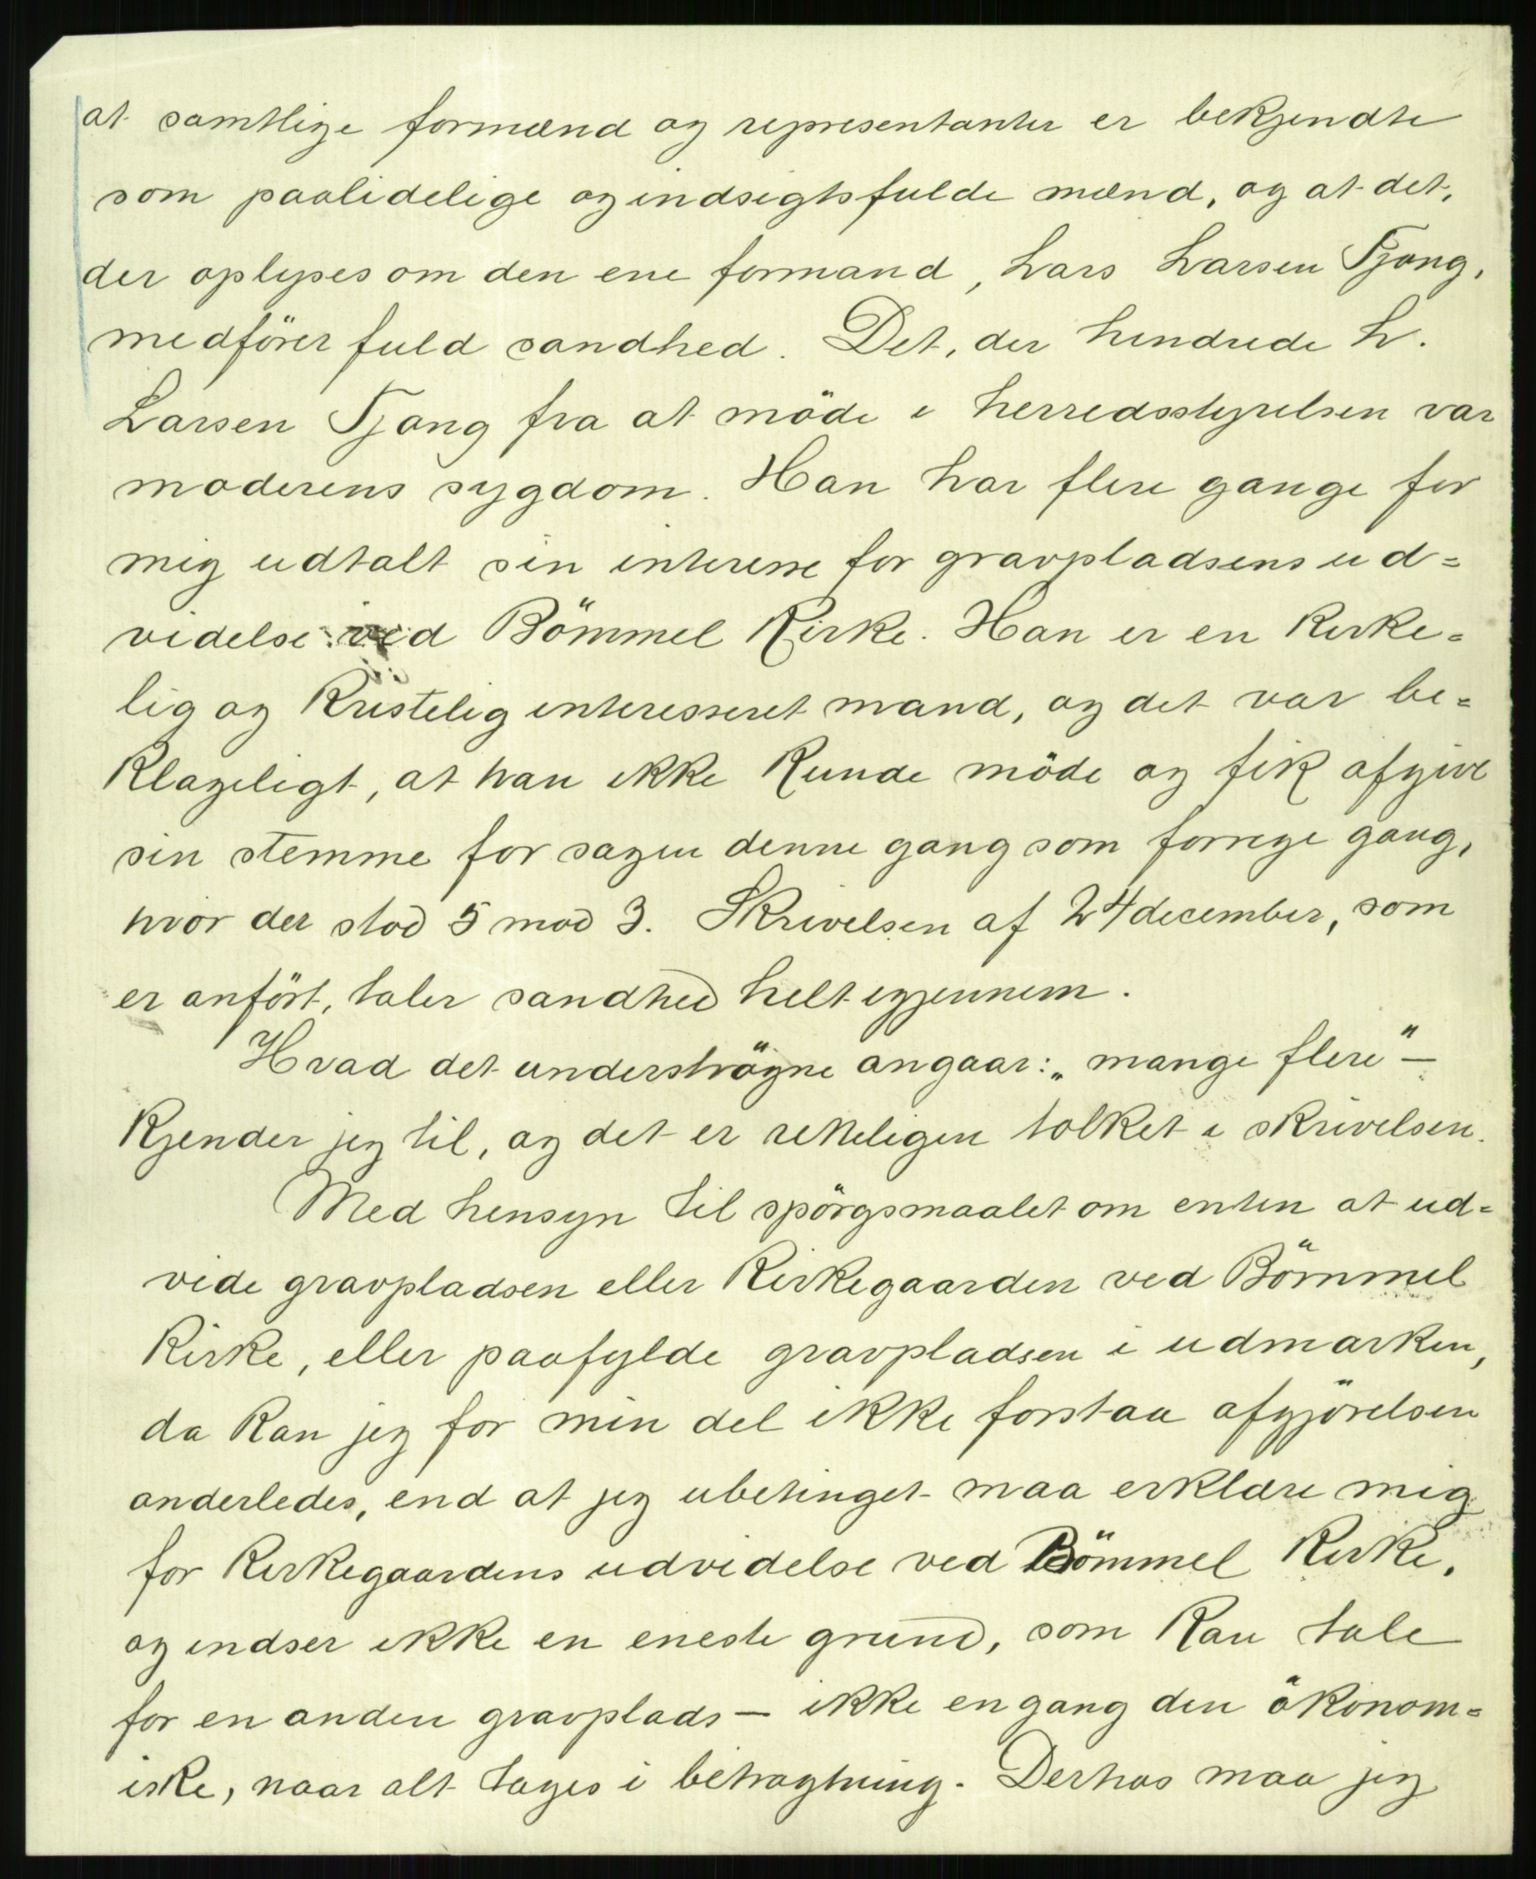 at samtlige formænd og representanter er bekjendte
som paalidelige og indsigtsfulde mænd, og at det,
der oplyses om den ene formand, Lars Larsen Tjong,
medfører fuld sandhed. Det, der hindrede L.
Larsen Tjong fra at möde i herredsstyrelsen var
moderens sygdom. Han har flere gange for
mig udtalt sin interesse for gravpladsens ud=
videlse ved Bömmel Kirke. Han er en kirke=
lig og kristelig interesseret mand, og det var be=
klageligt, at han ikke kunde möde og fik afgive
sin stemme for sagen denne gang som forrige gang,
hvor der stod 5 mod 3. Skrivelsen af 24 december, som
er anfört, taler sandhed helt igjennem.
Hvad det underströgne angaar: „mange flere" —
kjender jeg til, og det er rikeligen tolket i skrivelsen.
Med hensyn til spörgsmaalet om enten at ud=
vide gravpladsen eller kirkegaarden ved Bömmel
kirke, eller paafylde gravpladsen i udmarken,
da kan jeg for min del ikke forstaa afgjörelsen
anderledes, end at jeg ubetinget maa erklære mig
for kirkegaardens udvidelse ved Bömmel kirke,
og indser ikke en eneste grund, som kan tale
for en anden gravplads — ikke engang den ökonom=
iske, naar alt tages i betragtning. Derhos maa jeg